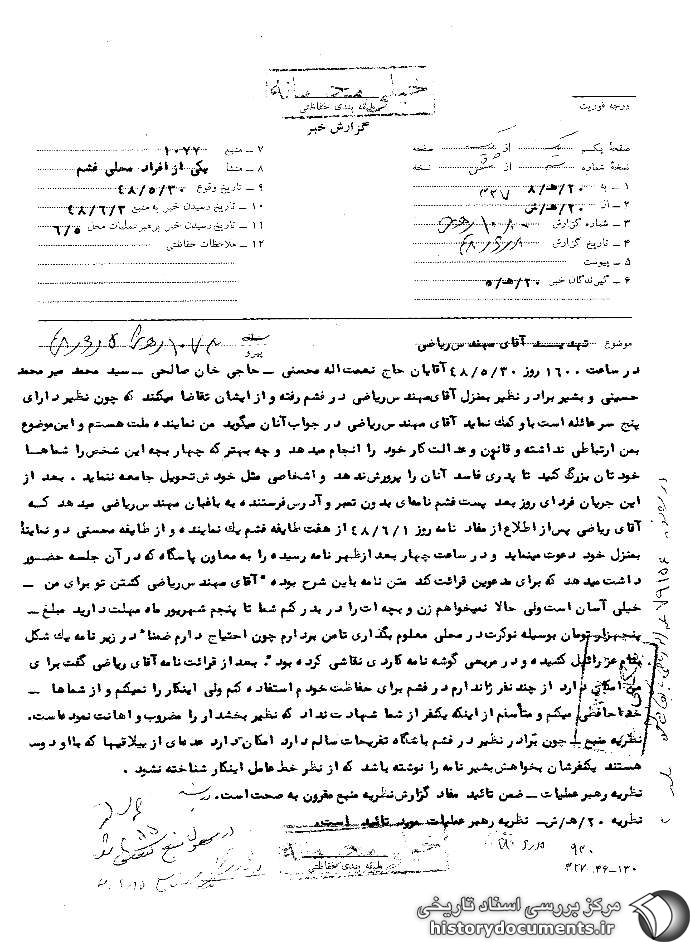 خیلی محرمانه
طبقه بندی حفاظتی
درجه فوریت
گزارش خبر
صفحه یکم از صفحه
نسخه شماره از نسخه
۱ ـ به ۲۰/هـ/۸ ۳۲۷
۲ ـ از ۲۰/هـ/ش
۳ ـ شماره گزارش
۴ ـ تاریخ گزارش
۵ ـ پیوست
۶ ـ گیرندگان خبر ۲۰/هـ/۵
۷ ـ منبع ۱۰۷۷
۸ ـ منشأ یکی از افراد محلی فشم
۹ ـ تاریخ وقوع ۴۸/۵/۳۰
۱۰ ـ تاریخ رسیدن خبر به منبع ۴۸/۶/۳
۱۱ ـ تاریخ رسیدن خبر برهبر عملیات محل ۶/۵
۱۲ ـ ملاحظات حفاظتی
موضوع تهدید آقای مهندس ریاضی
پیرو
در ساعت ۱۶۰۰ روز ۴۸/۵/۳۰ آقایان حاج نعمت اله محسنی ـ حاجی خان صالحی ـ سید محمد میر محمد
حسینی و بشیر برادر نظیر بمنزل آقای مهندس ریاضی در فشم رفته و از ایشان تقاضا میکنند که چون نظیر دارای
پنج سر عائله است باو کمک نماید آقای مهندس ریاضی در جواب آنان میگوید من نماینده ملت هستم و این موضوع
بمن ارتباطی نداشته و قانون و عدالت کار خود را انجام میدهد و چه بهتر که چهار بچه این شخص را شماها
خودتان بزرگ کنید تا پدری فاسد آنان را پرورش ندهد و اشخاصی مثل خودش تحویل جامعه ننماید . بعد از
این جریان فردای روز بعد پست فشم نامه‌ای بدون تمبر و آدرس فرستنده به باغبان مهندس ریاضی میدهد که
آقای ریاضی پس از اطلاع از مفاد نامه روز ۴۸/۶/۱ از هفت طایفه فشم یک نماینده و از طایفه محسنی دو نماینده
بمنزل خود دعوت مینماید و در ساعت چهار بعد از ظهر نامه رسیده را به معاون پاسگاه که در آن جلسه حضور
داشت میدهد که برای مدعوین قرائت کند متن نامه باین شرح بوده "آقای مهندس ریاضی کشتن تو برای من ـ
خیلی آسان است ولی حالا نمیخواهم زن و بچه ات را در بدر کنم شما تا پنجم شهریور ماه مهلت دارید مبلغ ـ
پنجهزار تومان بوسیله نوکرت در محلی معلوم بگذاری تا من بردارم چون احتیاج دارم ضمنا" در زیر نامه یک شکل
بنام عزرائیل کشیده و در مربعی گوشه نامه کاردی نقاشی کرده بود". بعد از قرائت نامه آقای ریاضی گفت برای
من امکان دارد از چند نفر ژاندارم در فشم برای حفاظت خودم استفاده کنم ولی اینکار را نمیکنم و از شماها ـ
خداحافظی میکنم و متأسفم از اینکه یکنفر از شما شهادت نداد که نظیر بخشدار را مضروب و اهانت نموده است.
نظریه منبع ـ چون برادر نظیر در فشم باشگاه تفریحات سالم دارد امکان دارد عده‌ای از ییلاقیها که با او دوست
هستند یکنفرشان بخواهش بشیر نامه را نوشته باشد که از نظر خط عامل اینکار شناخته نشود .
نظریه رهبر عملیات ـ ضمن تائید مفاد گزارش نظریه منبع مقرون به صحت است.
نظریه ۲۰/هـ/ش ـ نظریه رهبر عملیات مورد تائید است.
خیلی محرمانه
طبقه بندی حفاظتی
مرکز بررسی اسناد تاریخی
historydocuments.ir